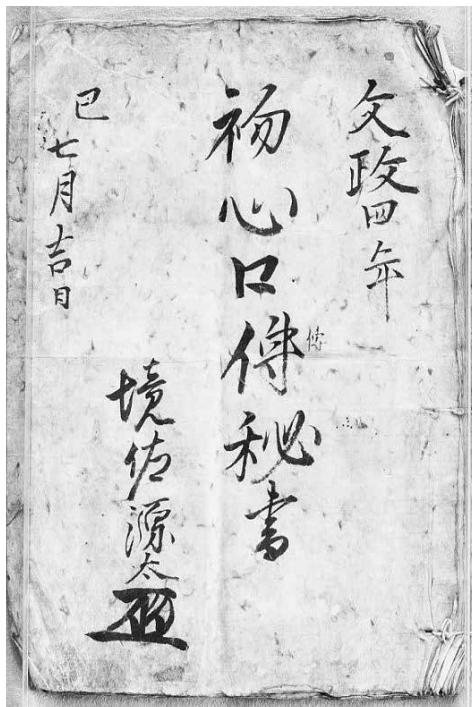 文政四年
初心口傳秘書
傳
巳七月吉日
境佐源太